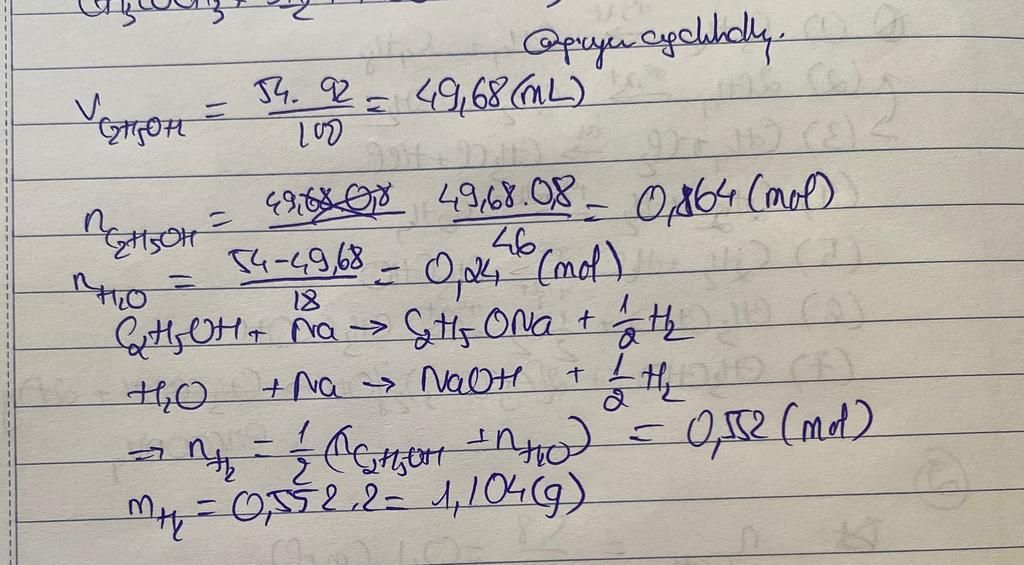 V C2H5OH = 54. 92 / 100 = 49,68 (mL)
n C2H5OH = 49,68.0,8 / 46 = 0,864 (mol)
n H2O = 54-49,68 / 18 = 0,24 (mol)
C2H5OH + Na → C2H5ONa + 1/2 H2
H2O + Na → NaOH + 1/2 H2
⇒ n H2 = 1/2 (n C2H5OH + n H2O) = 0,552 (mol)
m H2 = 0,552.2 = 1,104 (g)